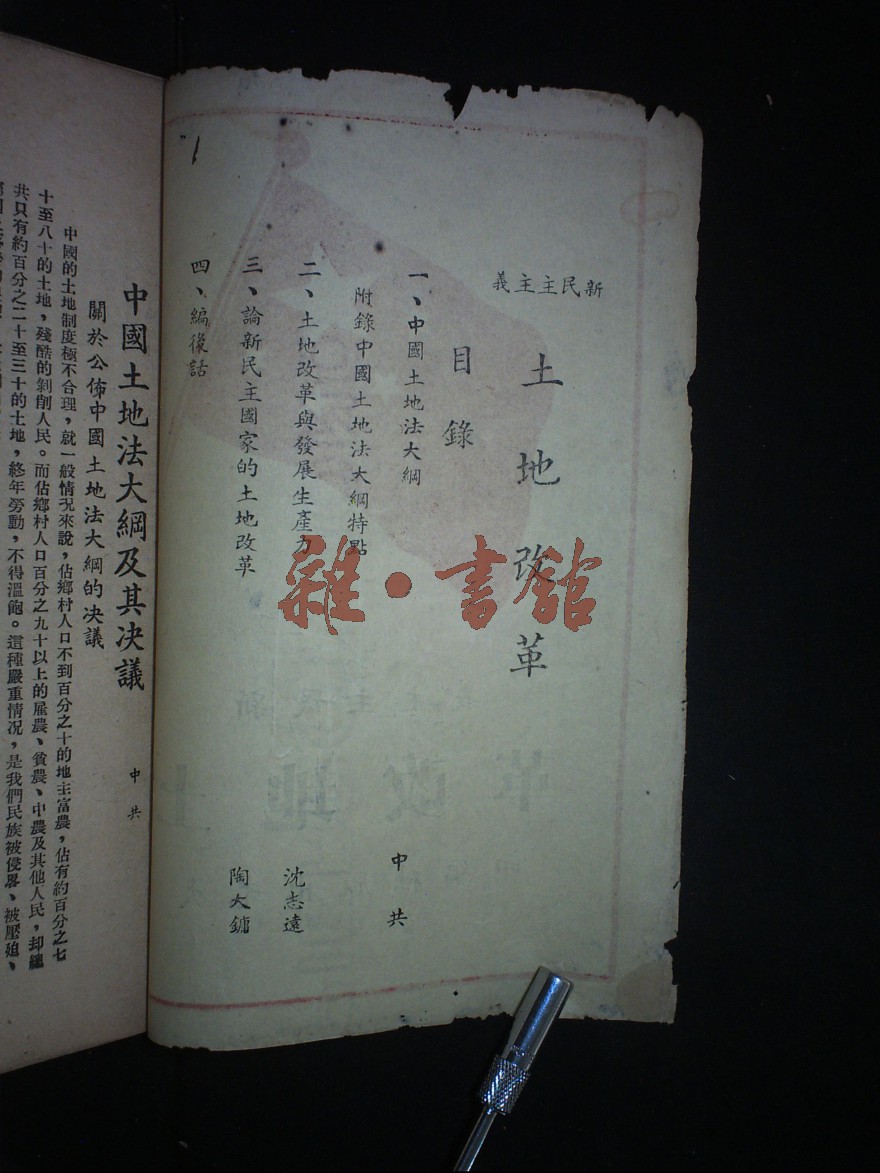 新民主主義
土地改革
目錄
一、中國土地法大綱 中共
附錄中國土地法大綱特點
二、土地改革與發展生產力 沈志遠
三、論新民主國家的土地改革 陶大鏞
四、編後話
1
雜·書館
中國土地法大綱及其决議 中共
關於公佈中國土地法大綱的决議
中國的土地制度極不合理，就一般情况來說，佔鄉村人口不到百分之十的地主富農，佔有約百分之七
十至八十的土地，殘酷的剝削人民。而佔鄉村人口百分之九十以上的雇農、貧農、中農及其他人民，却總
共只有約百分之二十至三十的土地，終年勞動，不得溫飽。這種嚴重情况，是我們民族被侵畧、被壓廹、